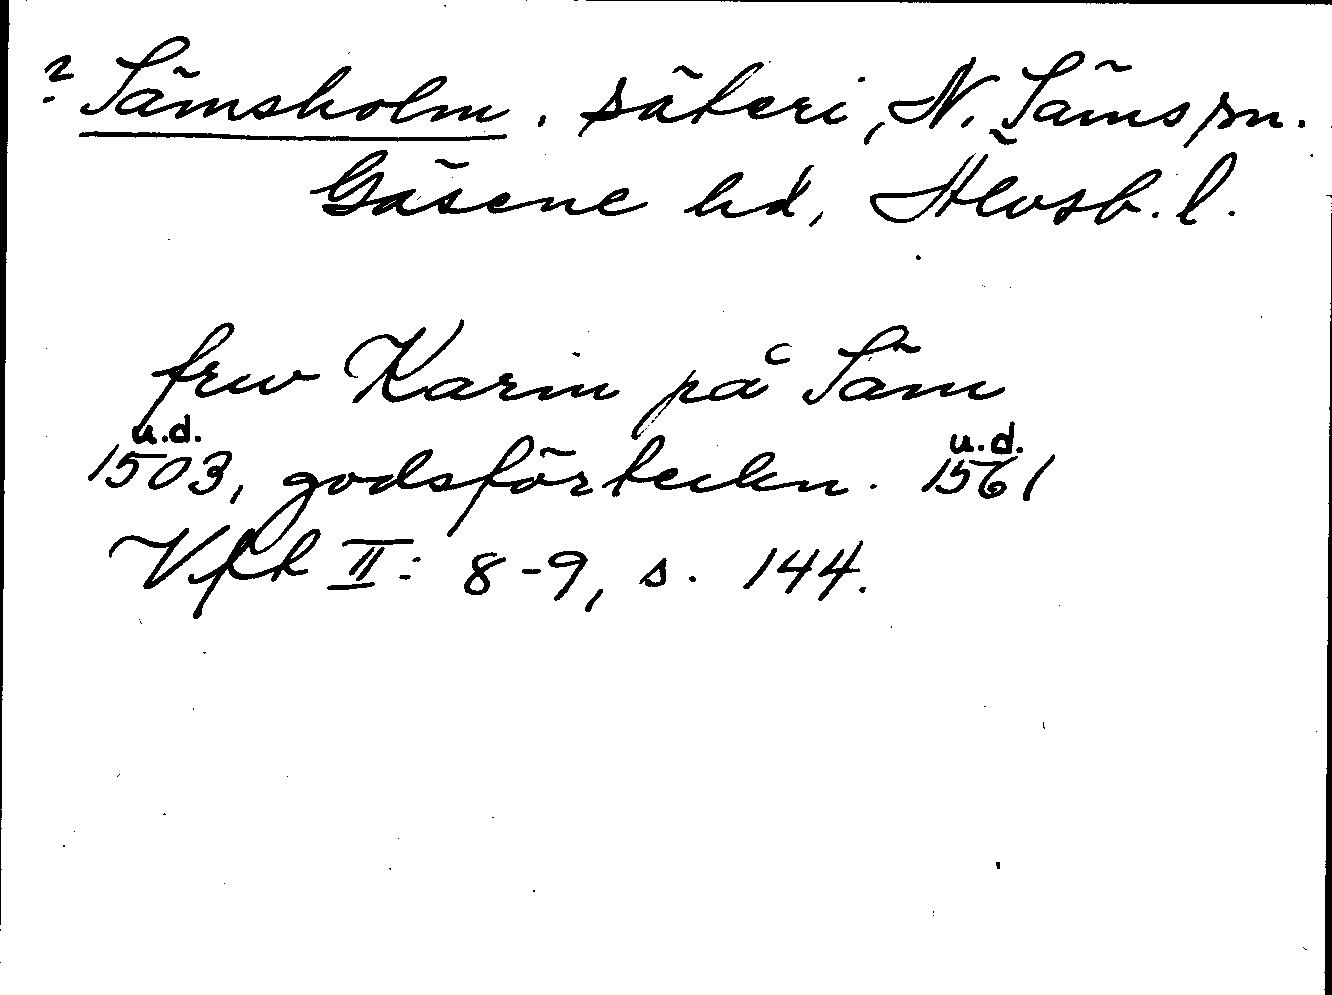 ? Sämsholm. säteri, N. Säms sn.
Gäsene hd, Älvsb. l.
frw Karin på Säm
u.d. u.d.
1503, godsförteckn. 1561
Vfk II: 8-9, s. 144.